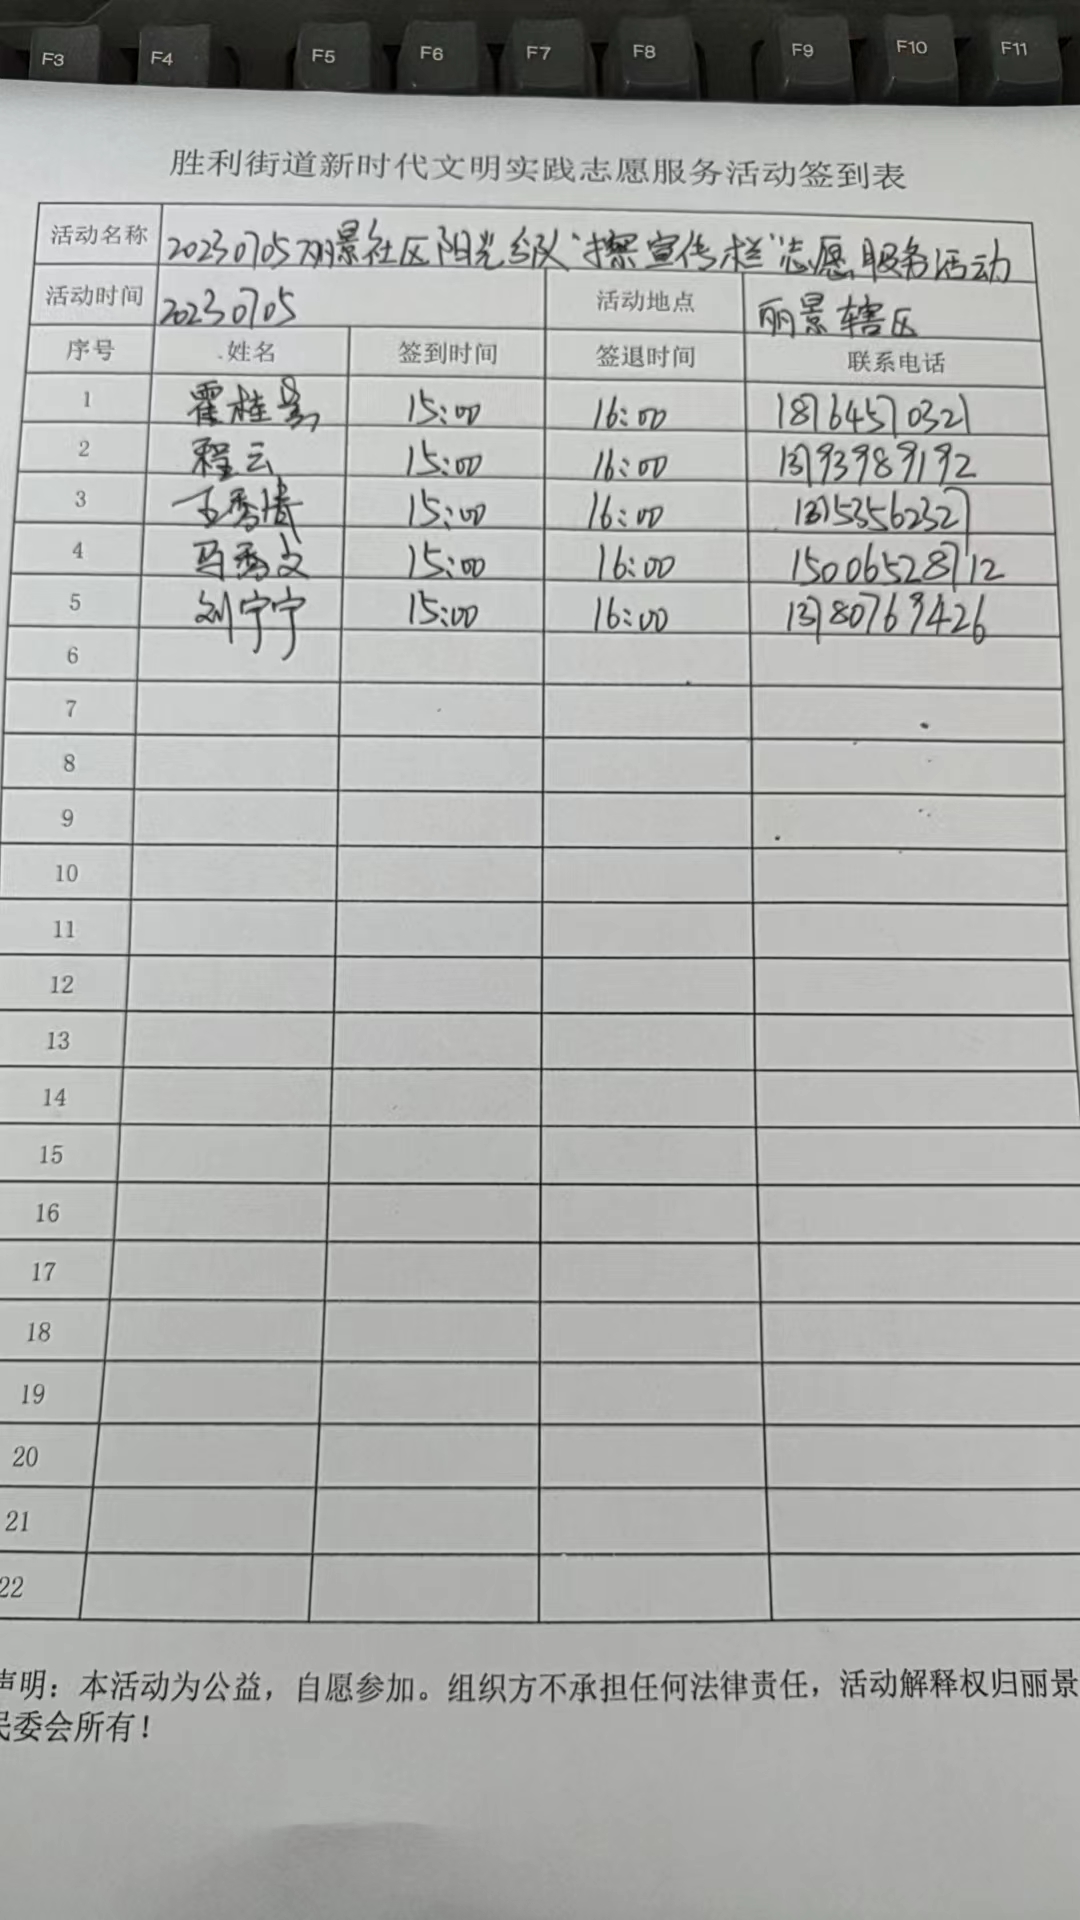 F3 F4 F5 F6 F7 F8 F9 F10 F11
胜利街道新时代文明实践志愿服务活动签到表
活动名称 20230705丽景社区阳光分队“擦宣传栏”志愿服务活动
活动时间 20230705 活动地点 丽景辖区
序号 姓名 签到时间 签退时间 联系电话
1 霍桂 15:00 16:00 18764570321
2 程云 15:00 16:00 13793989192
3 王秀 15:00 16:00 13153562327
4 马秀文 15:00 16:00 15006528712
5 刘宁宁 15:00 16:00 13780769426
6
7
8
9
10
11
12
13
14
15
16
17
18
19
20
21
22
声明：本活动为公益，自愿参加。组织方不承担任何法律责任，活动解释权归丽景
民委会所有！